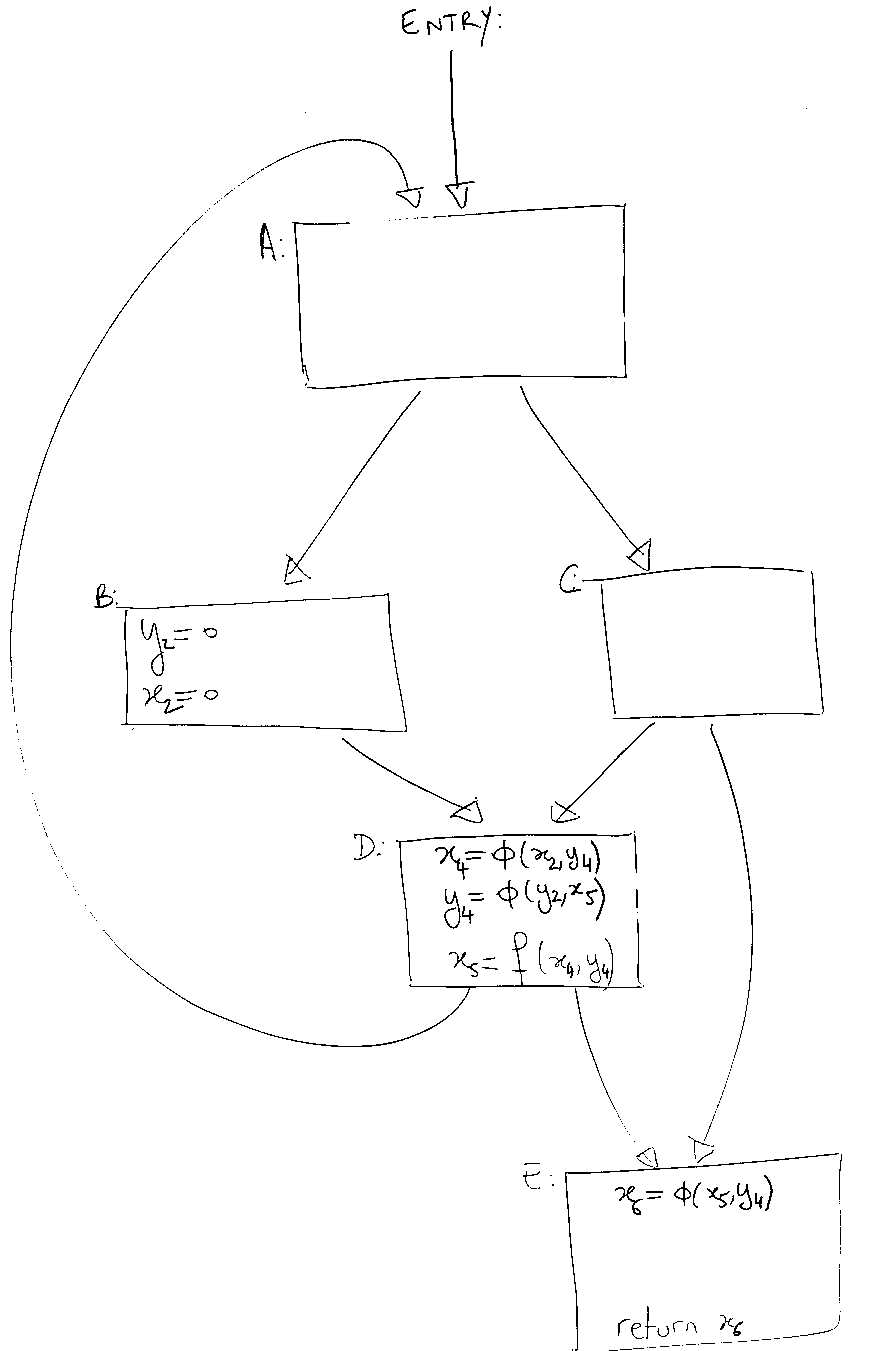 ENTRY:
A:
B:
y₂ = 0
x₂ = 0
C:
D:
x₄ = ϕ(x₂, y₄)
y₄ = ϕ(y₂, x₅)
x₅ = f(x₄, y₄)
E:
x₆ = ϕ(x₅, y₄)
return x₆